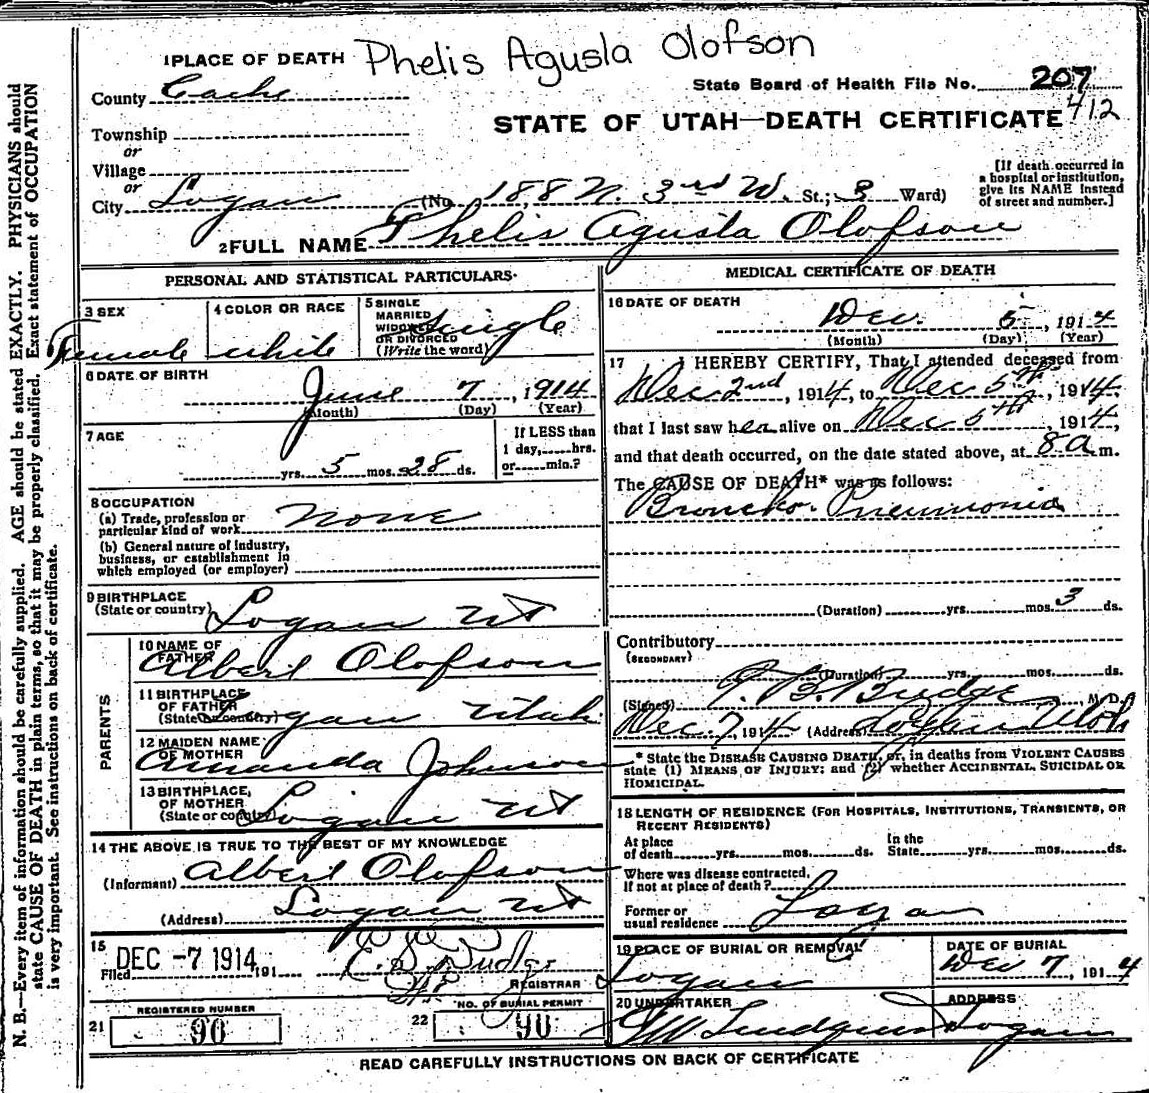 Phelis Agusla Olofson
1 PLACE OF DEATH
State Board of Health File No. 207
412
County Cache
STATE OF UTAH—DEATH CERTIFICATE
Township
or
Village
or
City Logan (No. 188 N. 3rd W. St.; 3 Ward)
[If death occurred in
a hospital or institution,
give its NAME instead
of street and number.]
2 FULL NAME Phelis Agusta Olofson
PERSONAL AND STATISTICAL PARTICULARS
3 SEX
Female
4 COLOR OR RACE
white
5 SINGLE
MARRIED
WIDOWED
OR DIVORCED
(Write the word)
Single
6 DATE OF BIRTH
June 7, 1914
(Month) (Day) (Year)
7 AGE
yrs. 5 mos. 28 ds.
If LESS than
1 day, hrs.
or min.?
8 OCCUPATION
(a) Trade, profession or
particular kind of work none
(b) General nature of industry,
business, or establishment in
which employed (or employer)
9 BIRTHPLACE
(State or country) Logan Ut
PARENTS
10 NAME OF
FATHER
Albert Olofson
11 BIRTHPLACE
OF FATHER
(State or country)
Logan Utah
12 MAIDEN NAME
OF MOTHER
Amanda Johnson
13 BIRTHPLACE
OF MOTHER
(State or country)
Logan Ut
14 THE ABOVE IS TRUE TO THE BEST OF MY KNOWLEDGE
(Informant) Albert Olofson
(Address) Logan Ut
15
Filed DEC -7 1914 191
REGISTRAR
REGISTERED NUMBER
21 90
NO. OF BURIAL PERMIT
22 90
MEDICAL CERTIFICATE OF DEATH
16 DATE OF DEATH
Dec. 5, 1914
(Month) (Day) (Year)
17 I HEREBY CERTIFY, That I attended deceased from
Dec 2nd, 1914, to Dec 5th, 1914,
that I last saw her alive on Dec 5th, 1914,
and that death occurred, on the date stated above, at 8 a m.
The CAUSE OF DEATH* was as follows:
Broncho-Pneumonia
(Duration) yrs. mos. 3 ds.
Contributory
(SECONDARY)
(Duration) yrs. mos. ds.
(Signed) Budge M. D.
Dec 7, 1914 (Address) Logan Utah
* State the DISEASE CAUSING DEATH, or, in deaths from VIOLENT CAUSES
state (1) MEANS OF INJURY; and (2) whether ACCIDENTAL, SUICIDAL OR
HOMICIDAL.
18 LENGTH OF RESIDENCE (FOR HOSPITALS, INSTITUTIONS, TRANSIENTS, OR
RECENT RESIDENTS)
At place
of death yrs. mos. ds.
In the
State yrs. mos. ds.
Where was disease contracted,
if not at place of death?
Former or
usual residence Logan
19 PLACE OF BURIAL OR REMOVAL
Logan
DATE OF BURIAL
Dec 7, 1914
20 UNDERTAKER
ADDRESS
Logan
READ CAREFULLY INSTRUCTIONS ON BACK OF CERTIFICATE
N. B.—Every item of information should be carefully supplied. AGE should be stated EXACTLY. PHYSICIANS should
state CAUSE OF DEATH in plain terms, so that it may be properly classified. Exact statement of OCCUPATION
is very important. See instructions on back of certificate.